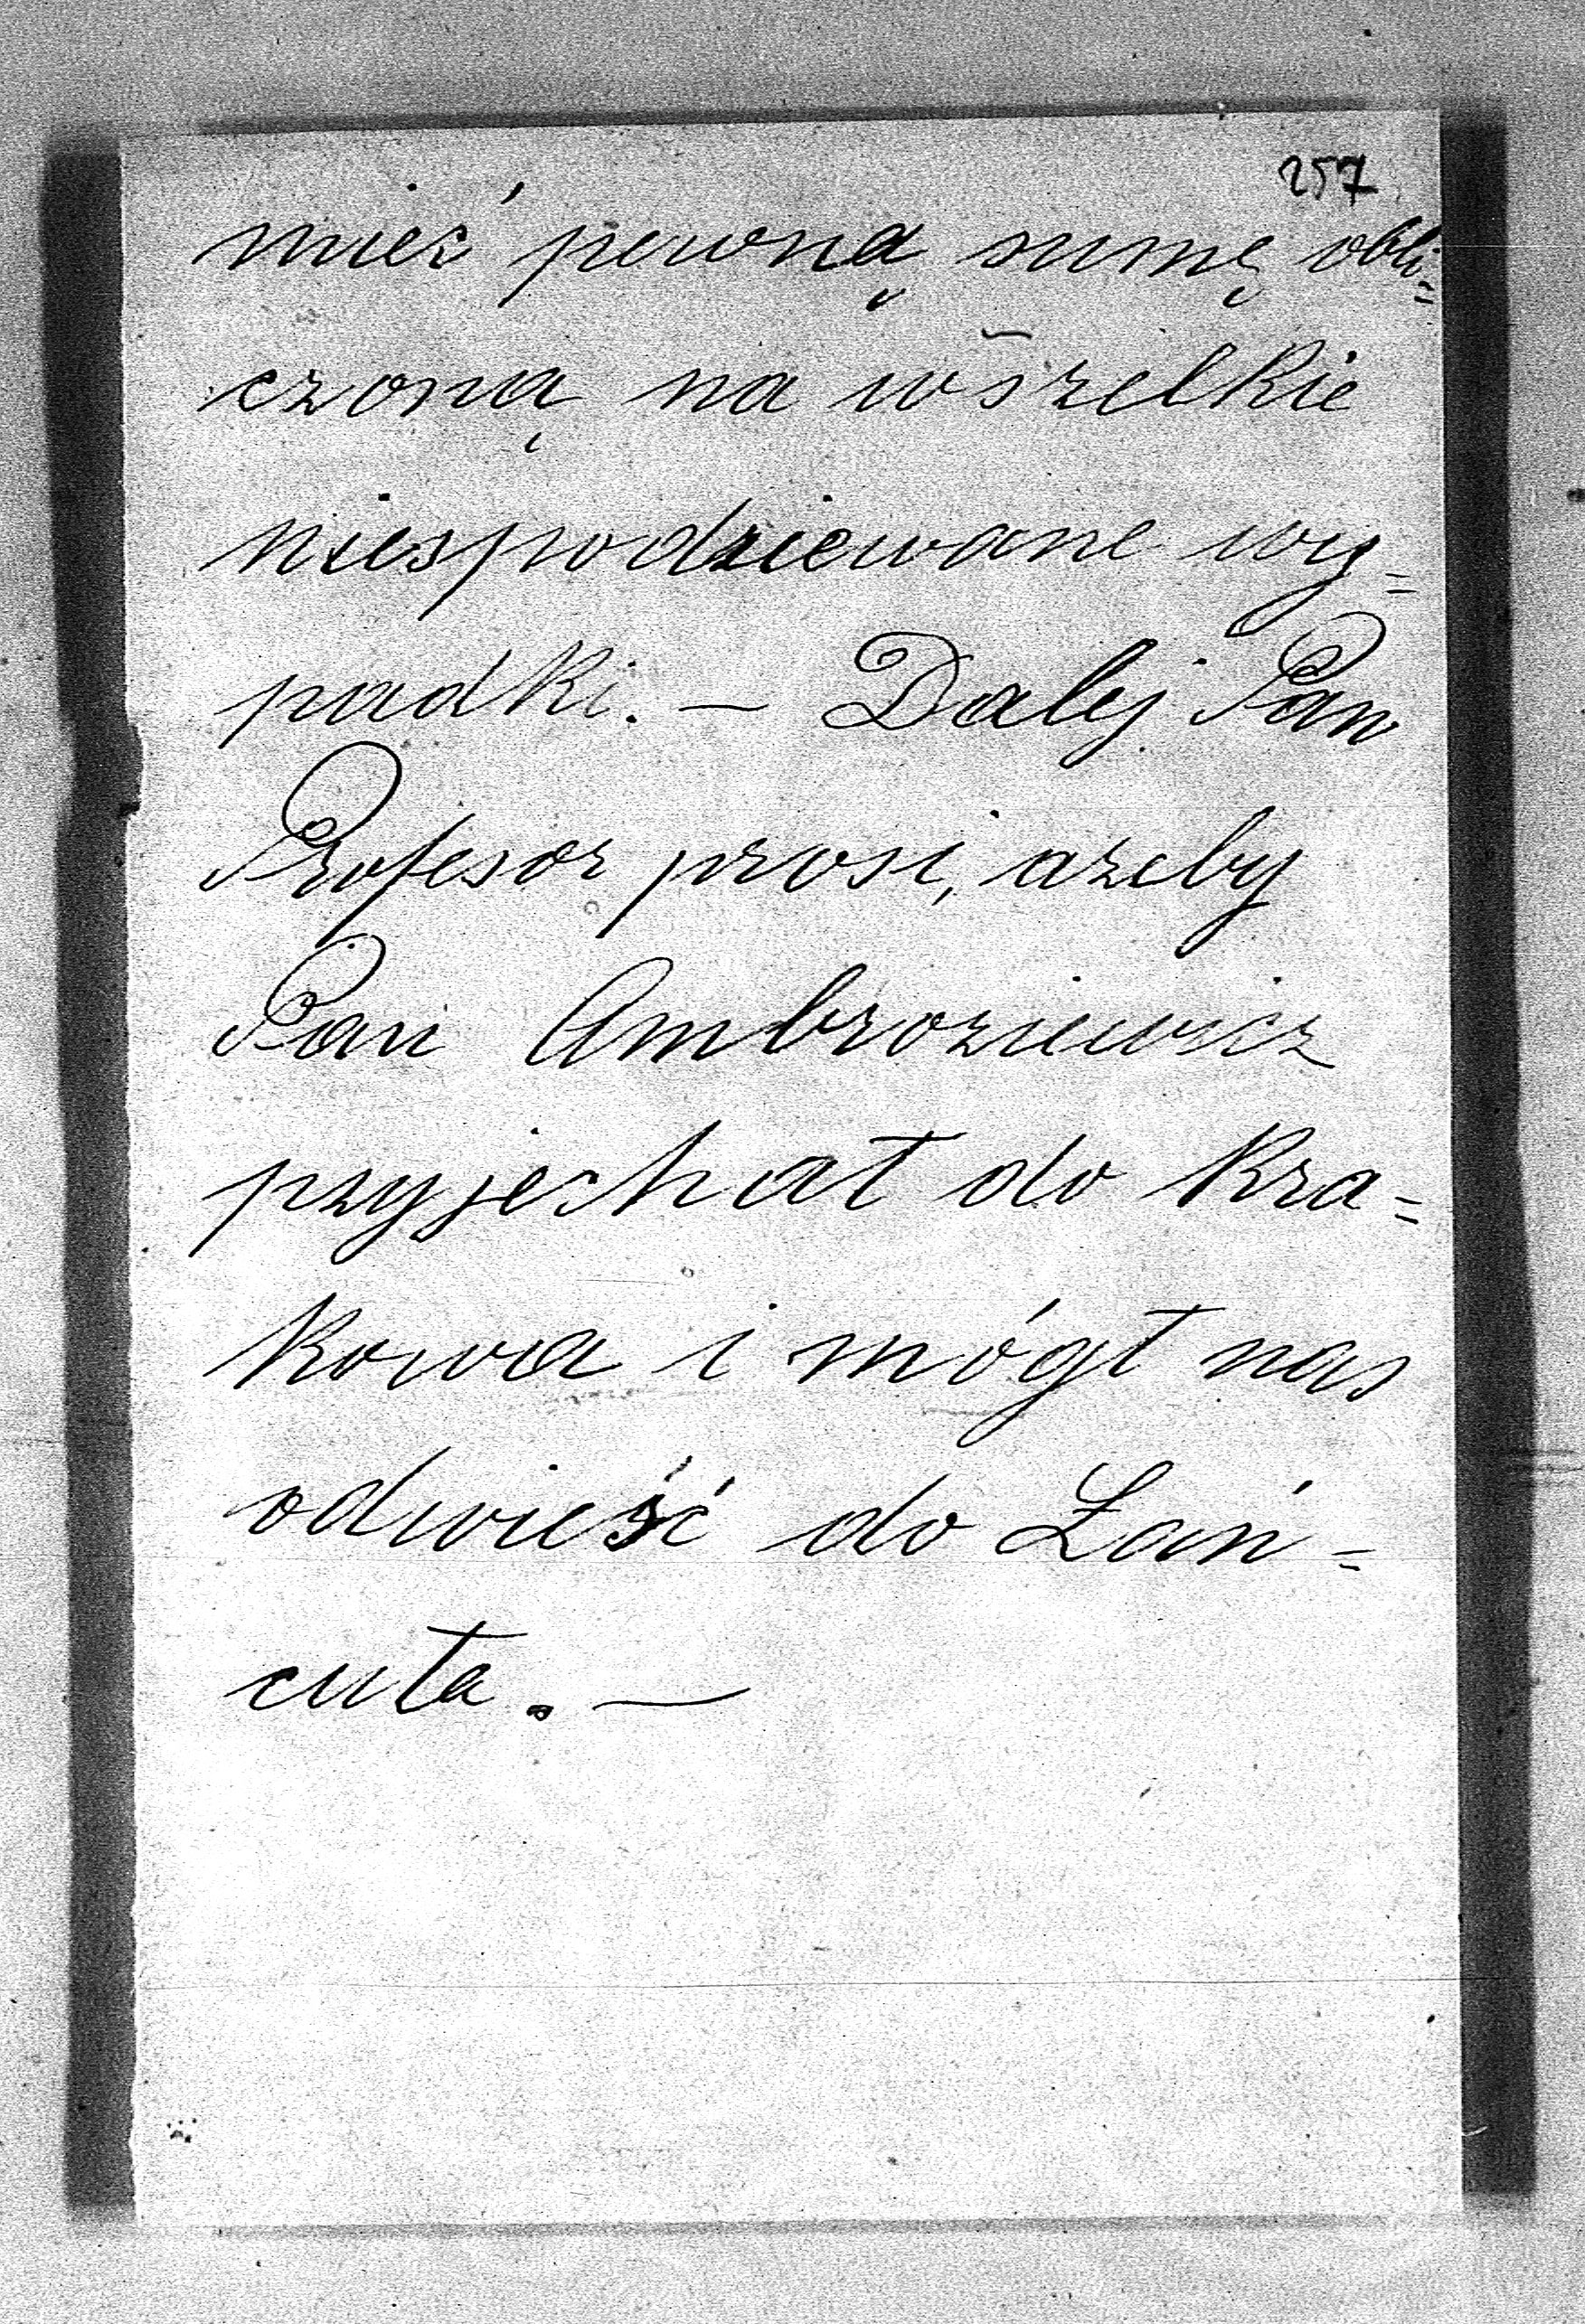 257
mieć pewną sumę obli=
czoną na wszelkie
niespodziewane wy=
padki. — Dalej Pan
Profesor prosi, azeby
Pan Ambroziewicz
przyjechał do Kra=
kowa i mógł nas
odwieść do Łań=
cuta. —